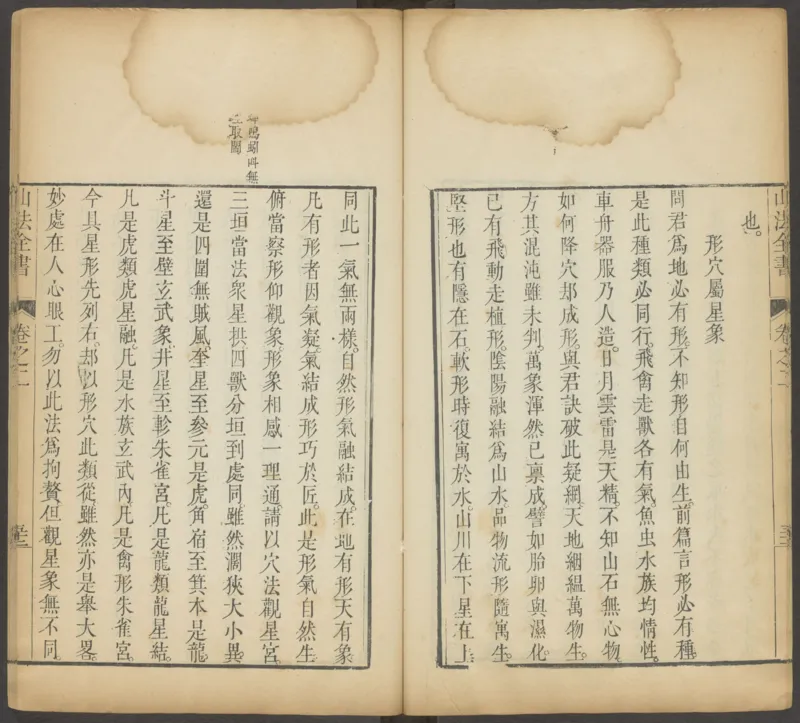 也。
形穴屬星象
問君爲地必有形。不知形自何由生。前篇言形必有種。
是此種類必同行。飛禽走獸各有氣。魚虫水族均情性。
車舟器服乃人造。日月雲雷是天精。不知山石無心物。
如何降穴却成形。與君訣破此疑網。天地絪縕萬物生。
方其混沌雖未判。萬象渾然已禀成。譬如胎卵與濕化。
已有飛動走植形。陰陽融結爲山水。品物流形隨寓生。
堅形也有隱在石。軟形時復寓於水。山川在下星在上。
山法全書
卷之二
同此一氣無兩樣。自然形氣融結成。在地有形天有象
凡有形者因氣凝。氣結成形巧於匠。此是形氣自然生
俯當察形仰觀象。形象相感一理通。請以穴法觀星宮。
三垣當法衆星拱。四獸分垣到處同。雖然濶狹大小異。
還是四圍無賊風。奎星至參元是虎。角宿至箕本是龍。
斗星至壁玄武象。井星至軫朱雀宮。凡是龍類龍星結。
凡是虎類虎星融。凡是水族玄武內。凡是禽形朱雀宮。
今具星形先列右。却以形穴此類從。雖然亦是舉大畧。
妙處在人心眼工。勿以此法爲拘贅。但觀星象無不同。
山法全書
卷之二